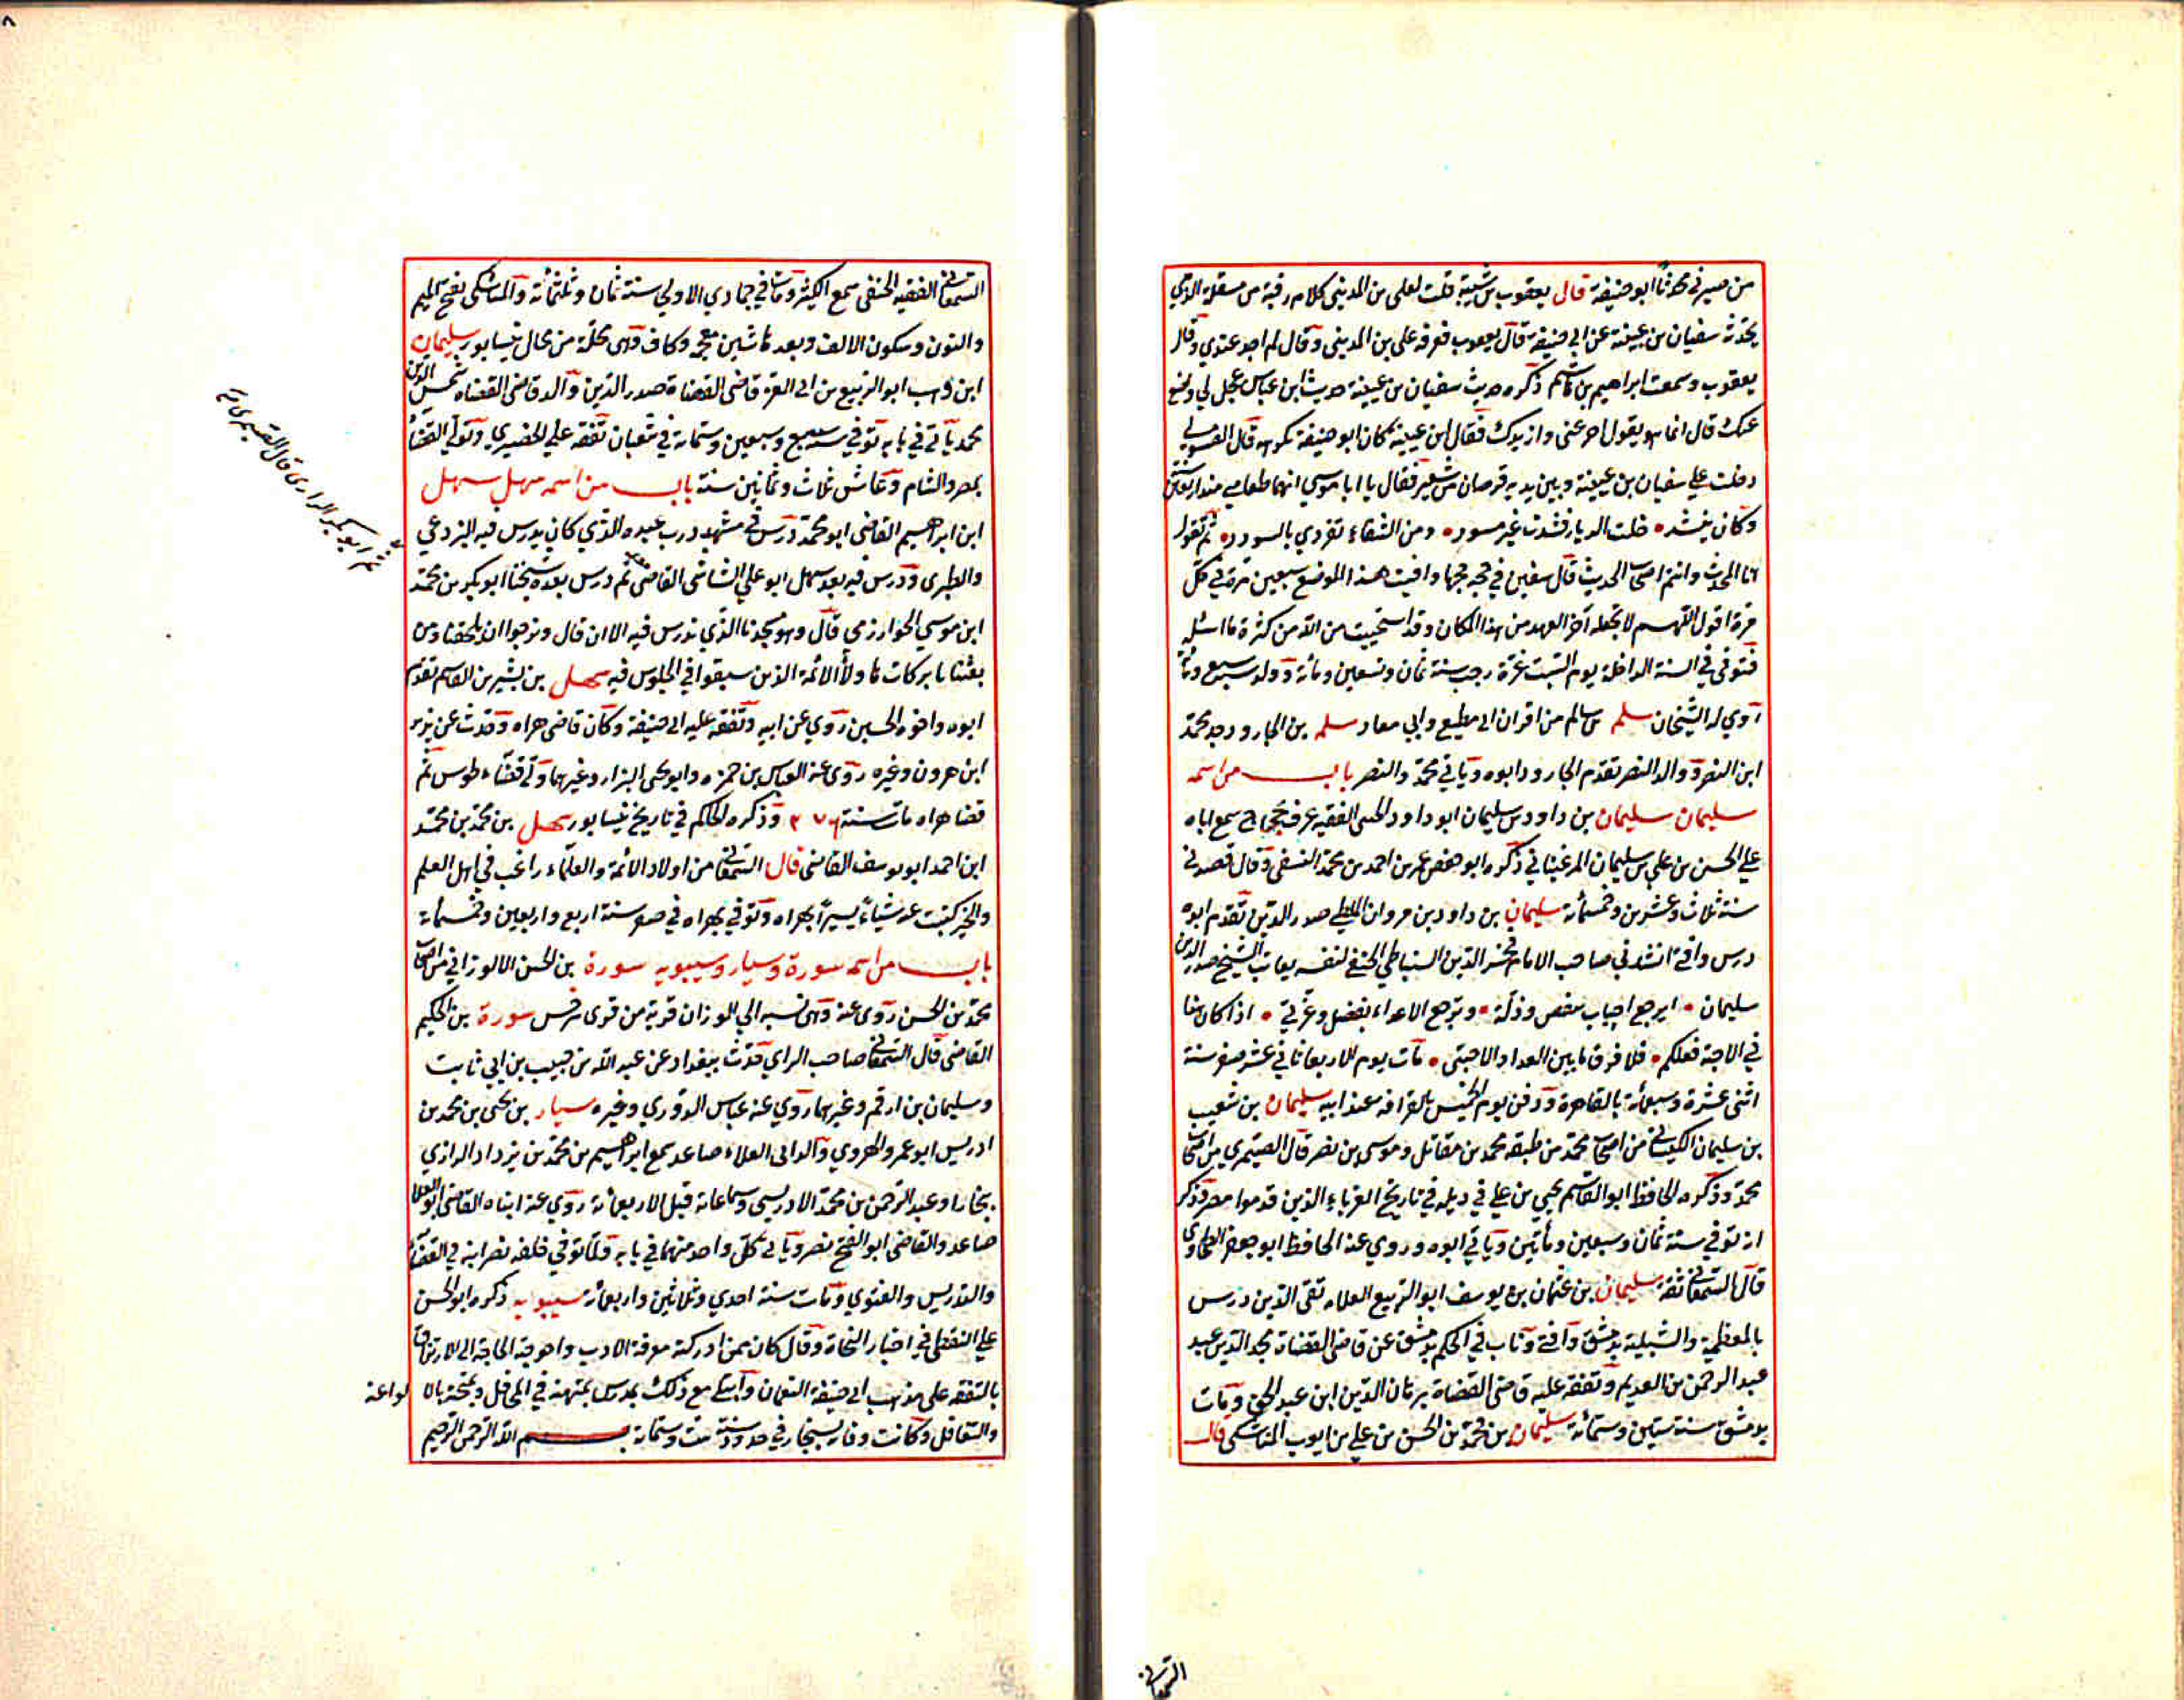 من صيرني محدثا ابو حنيفة قال يعقوب بن شيبة قلت لعلي بن المديني كلام رقبة بن مصقلة الذي
يحدثه سفيان بن عيينة عن ابي حنيفة قال يعقوب فعرفه علي بن المديني وقال لم اجده عندي وقال
يعقوب وسمعت ابراهيم بن هاشم ذكره حديث سفيان بن عيينة حديث ابن عباس عجل لي وضع
عنك قال انما هو يقول اخر عني وازيدك فقال ابن عيينة كان ابو حنيفة يكرهه قال
دخلت علي سفيان بن عيينة وبين يديه قرصان من شعير فقال يا ابا موسي انهما طعامي منذ اربعين سنة
وكان ينشد خلت الديار فسدت غير مسود ومن الشقاء تفردي بالسودد ثم تقول
انا المحدث وانتم اصحاب الحديث قال سفين في حجة حجها وافيت هذا الموضع سبعين مرة في كل
مرة اقول اللهم لا تجعله آخر العهد من هذا المكان وقد استحييت من الله من كثرة ما اسئله
فتوفي في السنة الداخلة يوم السبت غرة رجب سنة ثمان وتسعين ومائة وولد سبع ومائة
روي له الشيخان سلم بن سالم من اقران ابي مطيع وابي معاد سلمه بن الجارود جد محمد
ابن النضر والد النضر تقدم الجارود ابوه وياتي محمد والنضر باب من اسمه
سليمان سليمان بن داود بن سليمان ابو داود الفقيه عرف بحجاج سمع اباه
علي الحسن بن علي بن سليمان المرغيناني ذكره ابو حفص عمر بن احمد بن محمد النسفي وقال قصدني
سنة ثلاث وعشرين وخمسمائة سليمان بن داود بن مروان الملطي صدر الدين تقدم ابوه
درس وافتي انشدني صاحب الامام فخر الدين السنباطي الحنفي لنفسه يعاتب الشيخ صدر الدين
سليمان ايرجع احباب بنقص وذلة وترجع الاعداء بفضل وعزتي اذا كان هذا
في الاحبة فعلكم فلا فرق ما بين العدا والاحبتي مات يوم الاربعا ثاني عشر صفر سنة
اثني عشرة وسبعمائة بالقاهرة ودفن يوم الخميس بالقرافه عند ابيه سليمان بن شعيب
بن سليمان الكيساني من اصحاب محمد من طبقة محمد بن مقاتل وموسي بن نصر قال الصيمري من اصحاب
محمد وذكره الحافظ ابو القاسم يحيي بن علي في ذيله في تاريخ الغرباء الذين قدموا مصر وذكر
انه توفي سنة ثمان وسبعين ومأتين وياتي ابوه وروي عنه الحافظ ابو جعفر الطحاوي
قال السمعاني ثقة سليمان بن عثمان بن يوسف ابو الربيع العلامه تقي الدين درس
بالمعظمية والشبلية بدمشق وافتي وناب في الحكم بدمشق عن قاضي القضاة مجد الدين عبد
عبد الرحمن بن العديم وتفقه عليه قاضي القضاة برهان الدين ابن عبد الحق ومات
بدمشق سنة ستين وستمائة سليمان بن محمد بن الحسن بن علي بن ايوب المناشكي قال
السمعاني
السمعاني الفقيه الحنفي سمع الكثير ومات في جمادي الاولي سنة ثمان وثلثمائة والمناشكي بفتح الميم
والنون وسكون الالف وبعدها شين معجمه وكاف وهي محلة من محال نيسابور سليمان
ابن وهب ابو الربيع بن ابي العز قاضي القضاة صدر الدين والد قاضي القضاه شمس الدين
محمد ياتي في بابه توفي سنة سبع وسبعين وستمائة في شعبان تفقه علي الحصيري وتولي القضاء
بمصر والشام وعاش ثلاث وثمانين سنة باب من اسمه سهل سهل
ابن ابراهيم القاضي ابو محمد درس في مشهد درب عبده الذي كان يدرس فيه البردعي
والطبري ودرس فيه بعد سهل ابو علي الشاشي القاضي ثم درس بعده شيخنا ابو بكر بن محمد
ابن موسي الخوارزمي قال وهو مسجدنا الذي ندرس فيه الان قال ونرجوا ان يلحقنا ومن
بعثنا بابركات هاولأ الائمة الذين سبقوا في الجلوس فيه سهل بن بشير بن القاسم تقدم
ابوه واخوه الحسين روي عن ابيه وتفقه عليه ابي حنيفة وكان قاضي هراه وحدث عن يزيد
ابن هرون وغيره روي عنه العباس بن حمزه وابو يحيي البزار وغيرهما ولي قضاء طوس ثم
قضا هراه مات سنة ٢٧٦ وذكره الحاكم في تاريخ نيسابور سهل بن محمد بن محمد
ابن احمد ابو يوسف القاضي قال السمعاني من اولاد الائمة والعلماء راغب في اهل العلم
والخير كتبت عنه شياء يسيرا بهراه وتوفي بهراه في صفر سنة اربع واربعين وخمسمائة
باب من اسمه سورة وسيار وسيبويه سورة بن الحسن الالوزاني من اصحاب
محمد بن الحسن روي عنه وهي نسبه الي الوزان قرية من قري سرخس سورة بن الحكيم
القاضي قال السمعاني صاحب الراي حدث ببغداد عن عبد الله بن حبيب بن ابي ثابت
وسليمان بن ارقم وغيرهما روي عنه عباس الدوري وغيره سيار بن يحيي بن محمد بن
ادريس ابو عمرو الهروي والد ابي العلاء صاعد سمع ابراهيم بن محمد بن يزداد الرازي
بخارا وعبد الرحمن بن محمد الادريسي وسماعاته قبل الاربعمائة روي عنه ابناه القاضي ابو العلا
صاعد والقاضي ابو الفتح نصر وياتي كل واحد منهما في بابه ولما توفي خلفه نصر ابنه في القضاء
والتدريس والفتوي ومات سنة احدي وثلاثين واربعمائة سيبويه ذكره ابو الحسن
علي القفطي في اخبار النحاة وقال كان ممن ادركته حرفة الادب واحوجته الحاجة الي الارتزاق
بالتفقه علي مذهب ابي حنيفة النعمان وابتلي مع ذلك بمدرس يمتهنه في المحافل ويمتحنه بالا لواعة
والتغافل وكانت وفاته بسنجار في حدود سنة ست وستمائة بسم الله الرحمن الرحيم
ثم ابو بكر الرازي قال الصيمري ثم